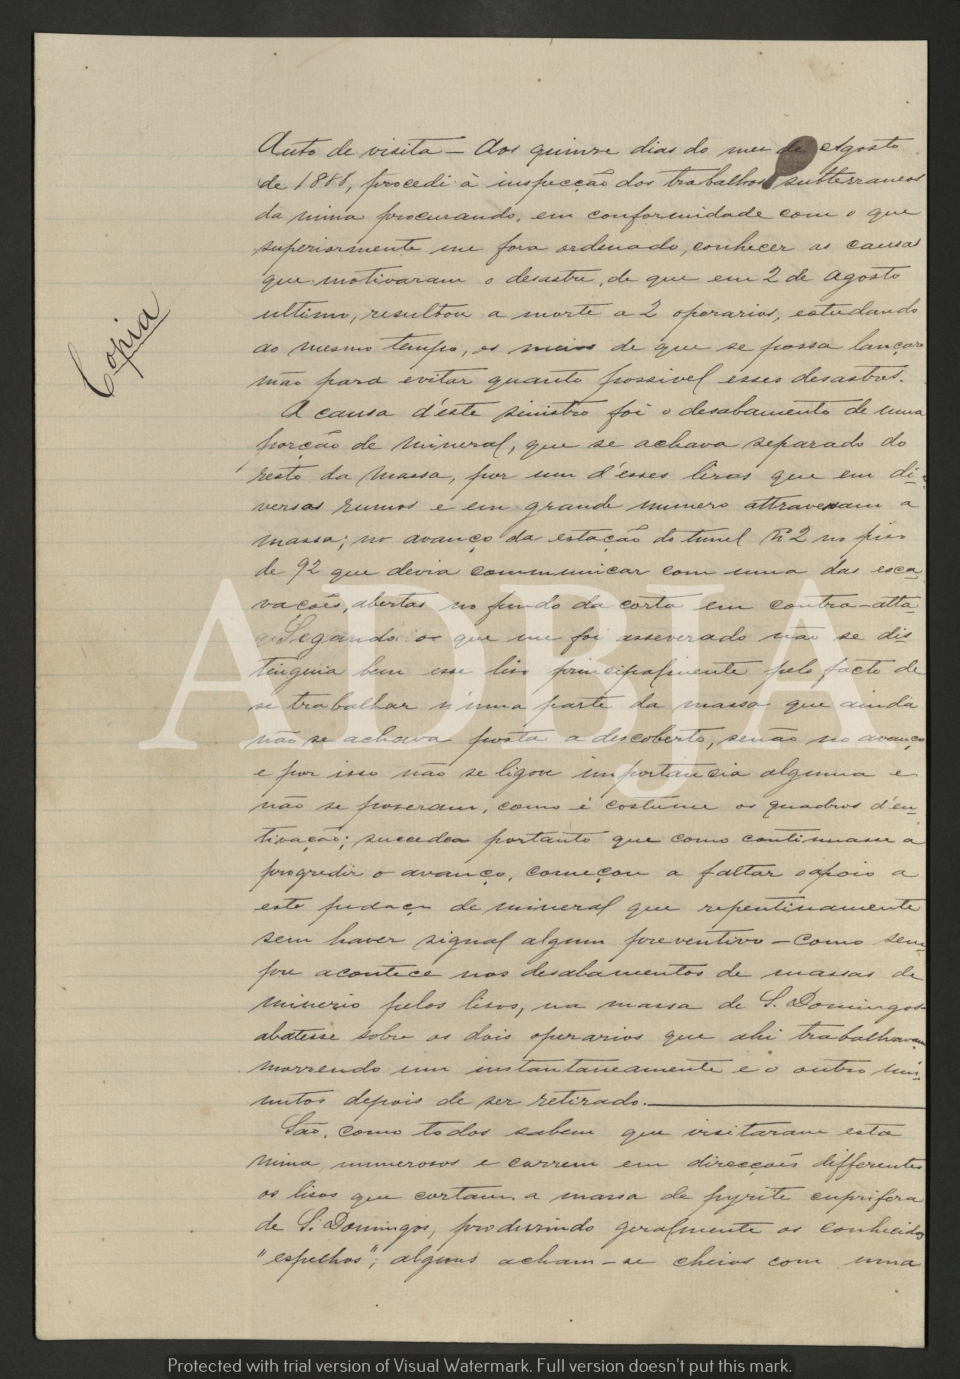 Copia
Auto de visita — Aos quinze dias do mez de Agosto
de 1888, procedi á inspecção dos trabalhos subterraneos
da mina procurando, em conformidade com o que
superiormente me fora ordenado, conhecer as causas
que motivaram o desastre, de que em 2 de Agosto
ultimo, resultou a morte a 2 operarios, estudando
ao mesmo tempo, os meios de que se possa lançar
mão para evitar quanto possivel esses desastres.
A causa d'éste sinistro foi o desabamento de uma
porção de mineral, que se achava separado do
resto da massa, por um d'ésses lisos que em di-
versos rumos e em grande numero attravessam a
massa; no avanço da estação do tunel nº 2 no piso
de 92 que devia communicar com uma das esca-
vações, abertas no fundo da corta em contra-atta-
Segundo o que me foi asseverado não se dis-
tinguia bem esse liso principalmente pelo facto de
se trabalhar n'uma parte da massa que ainda
não se achava posta a descoberto, senão no avanço
e por isso não se ligou importancia alguma e
não se poseram, como é costume os quadros d'en-
tivação; succedeu portanto que como continuasse a
progredir o avanço, começou a faltar o apoio a
este pedaço de mineral que repentinamente
sem haver signal algum preventivo — como sem-
pre acontece nos desabamentos de massas de
minerio pelos lisos, na massa de S. Domingos
abatesse sobre os dois operarios que ahi trabalhavam
morrendo um instantaneamente e o outro mi-
nutos depois de ser retirado.
São, como todos sabem que visitaram esta
mina, numerosos e correm em direcções differentes
os lisos que cortam a massa de pyrite cuprifera
de S. Domingos, produzindo geralmente os conhecidos
"espelhos"; alguns acham-se cheios com uma
ADBJA
Protected with trial version of Visual Watermark. Full version doesn't put this mark.